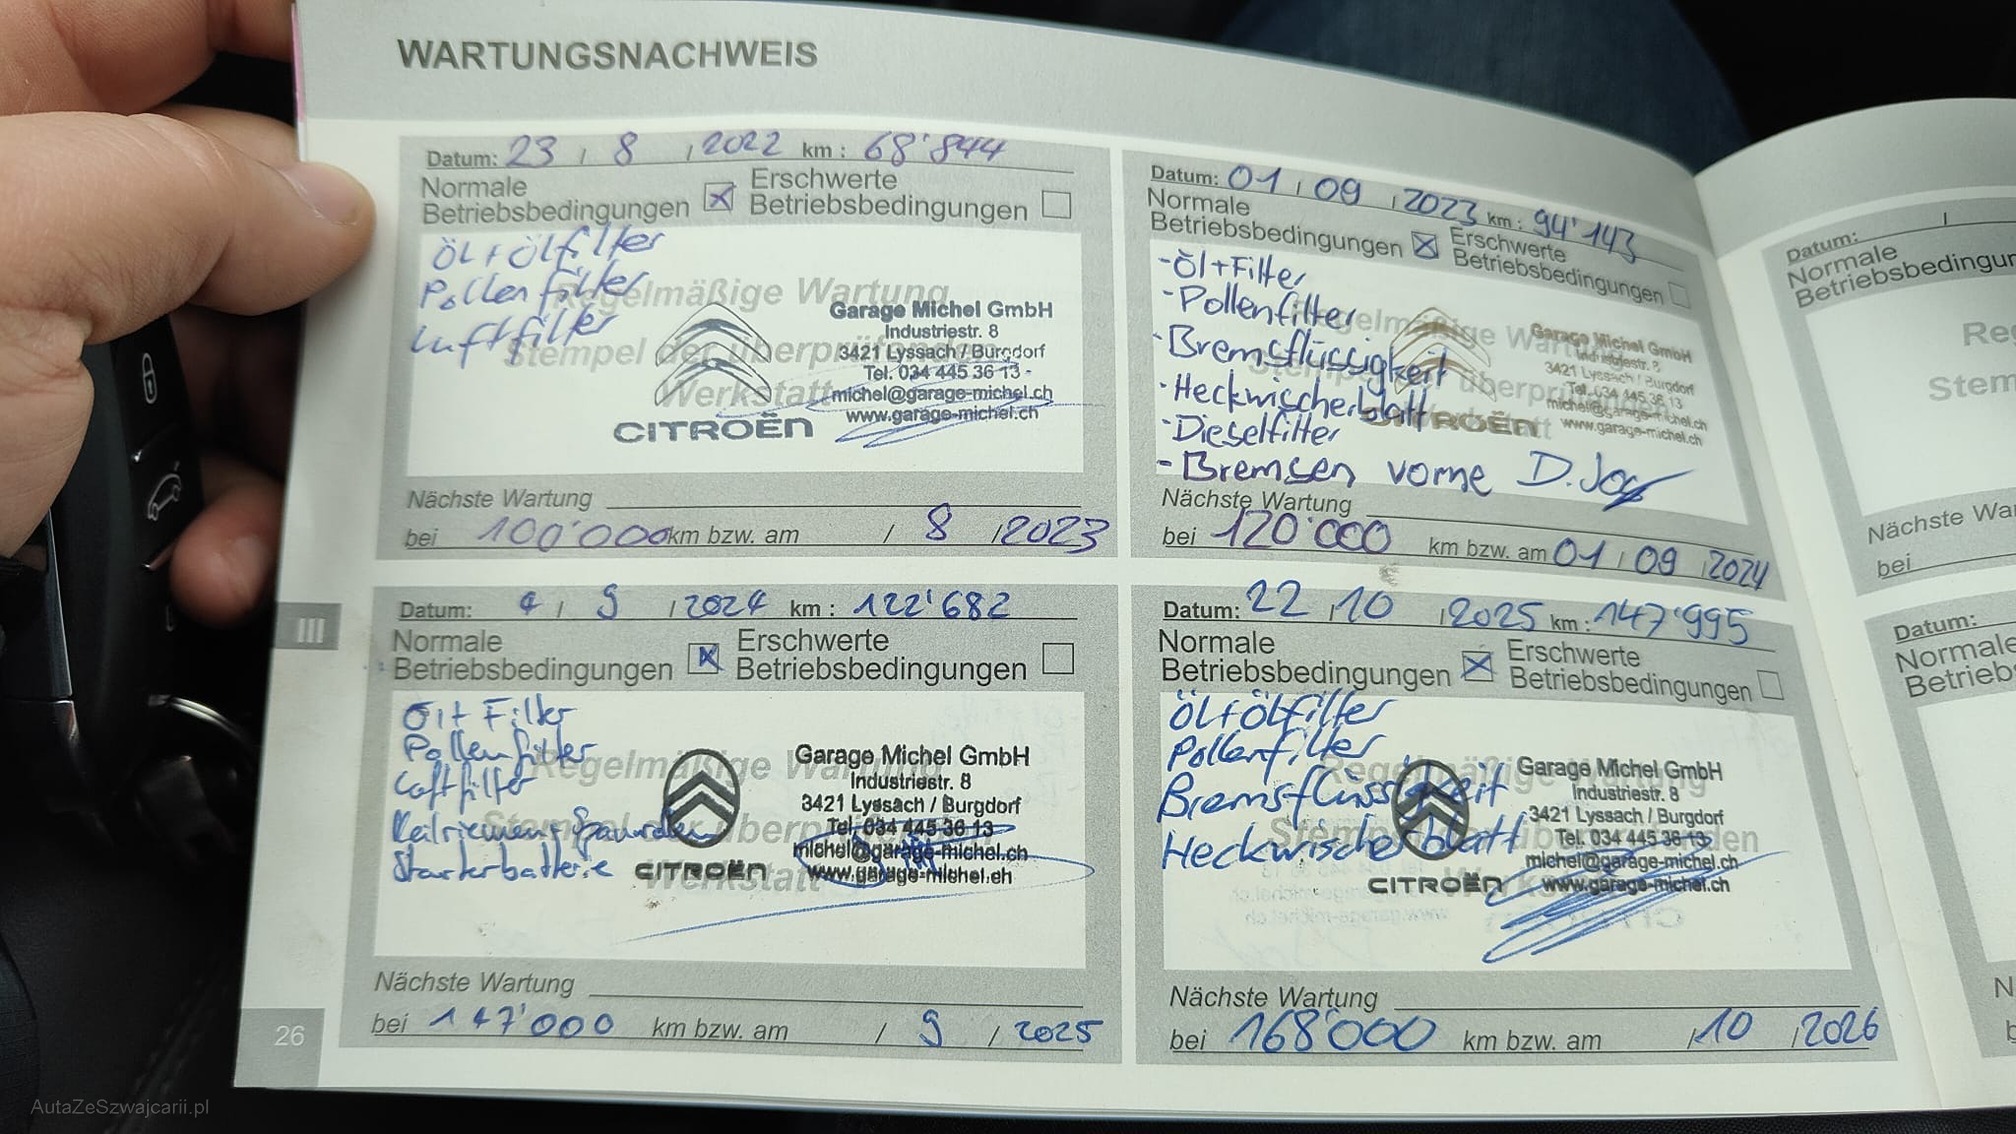 WARTUNGSNACHWEIS
Datum: 23 / 8 / 2022 km : 68'844
Normale Betriebsbedingungen ☒ Erschwerte Betriebsbedingungen ☐
Öl + Ölfilter
Pollenfilter
Luftfilter
Regelmäßige Wartung
Stempel der überprüfenden
Werkstatt
CITROËN
Garage Michel GmbH
Industriestr. 8
3421 Lyssach / Burgdorf
Tel. 034 445 36 13
michel@garage-michel.ch
www.garage-michel.ch
Nächste Wartung
bei 100'000 km bzw. am / 8 / 2023
Datum: 01 / 09 / 2023 km : 94'143
Normale Betriebsbedingungen ☒ Erschwerte Betriebsbedingungen ☐
- Öl + Filter
- Pollenfilter
- Bremsflüssigkeit
- Heckwischerblatt
- Dieselfilter
- Bremsen vorne
CITROËN
Garage Michel GmbH
Industriestr. 8
3421 Lyssach / Burgdorf
Tel. 034 445 36 13
michel@garage-michel.ch
www.garage-michel.ch
Nächste Wartung
bei 120'000 km bzw. am 01 / 09 / 2024
Datum: 4 / 9 / 2024 km : 122'682
Normale Betriebsbedingungen ☒ Erschwerte Betriebsbedingungen ☐
Öl + Filter
Pollenfilter
Luftfilter
Keilriemen +
Starterbatterie
Regelmäßige Wartung
Werkstatt
CITROËN
Garage Michel GmbH
Industriestr. 8
3421 Lyssach / Burgdorf
Tel. 034 445 36 13
michel@garage-michel.ch
www.garage-michel.ch
Nächste Wartung
bei 147'000 km bzw. am / 9 / 2025
Datum: 22 / 10 / 2025 km : 147'995
Normale Betriebsbedingungen ☒ Erschwerte Betriebsbedingungen ☐
Öl + Ölfilter
Pollenfilter
Bremsflüssigkeit
Heckwischerblatt
CITROËN
Garage Michel GmbH
Industriestr. 8
3421 Lyssach / Burgdorf
Tel. 034 445 36 13
michel@garage-michel.ch
www.garage-michel.ch
Nächste Wartung
bei 168'000 km bzw. am / 10 / 2026
III
26
Datum: /
Normale
Betriebsbedingu
Re
Stem
Nächste Wa
bei
Datum:
Normale
Betrieb
N
AutaZeSzwajcarii.pl